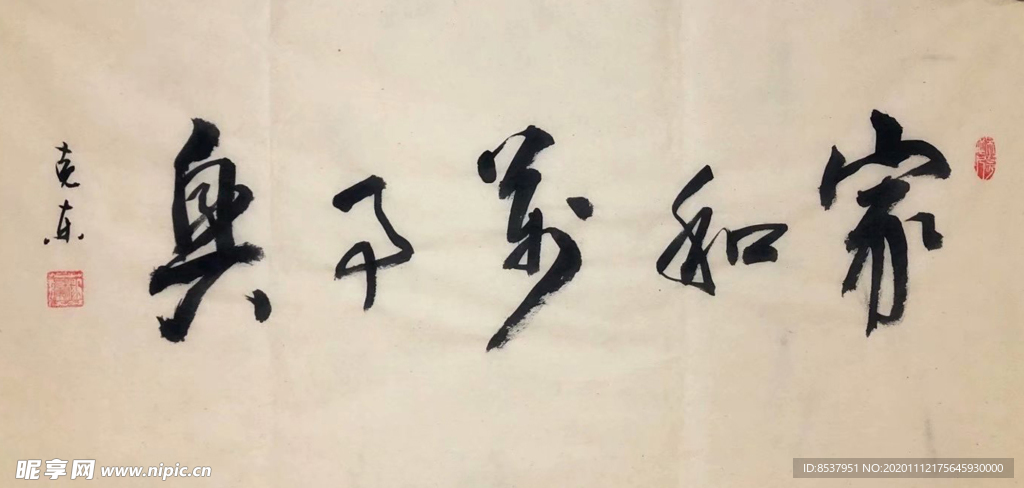 家和萬事興
克东
昵享网 www.nipic.cn
ID:8537951 NO:20201112175645930000